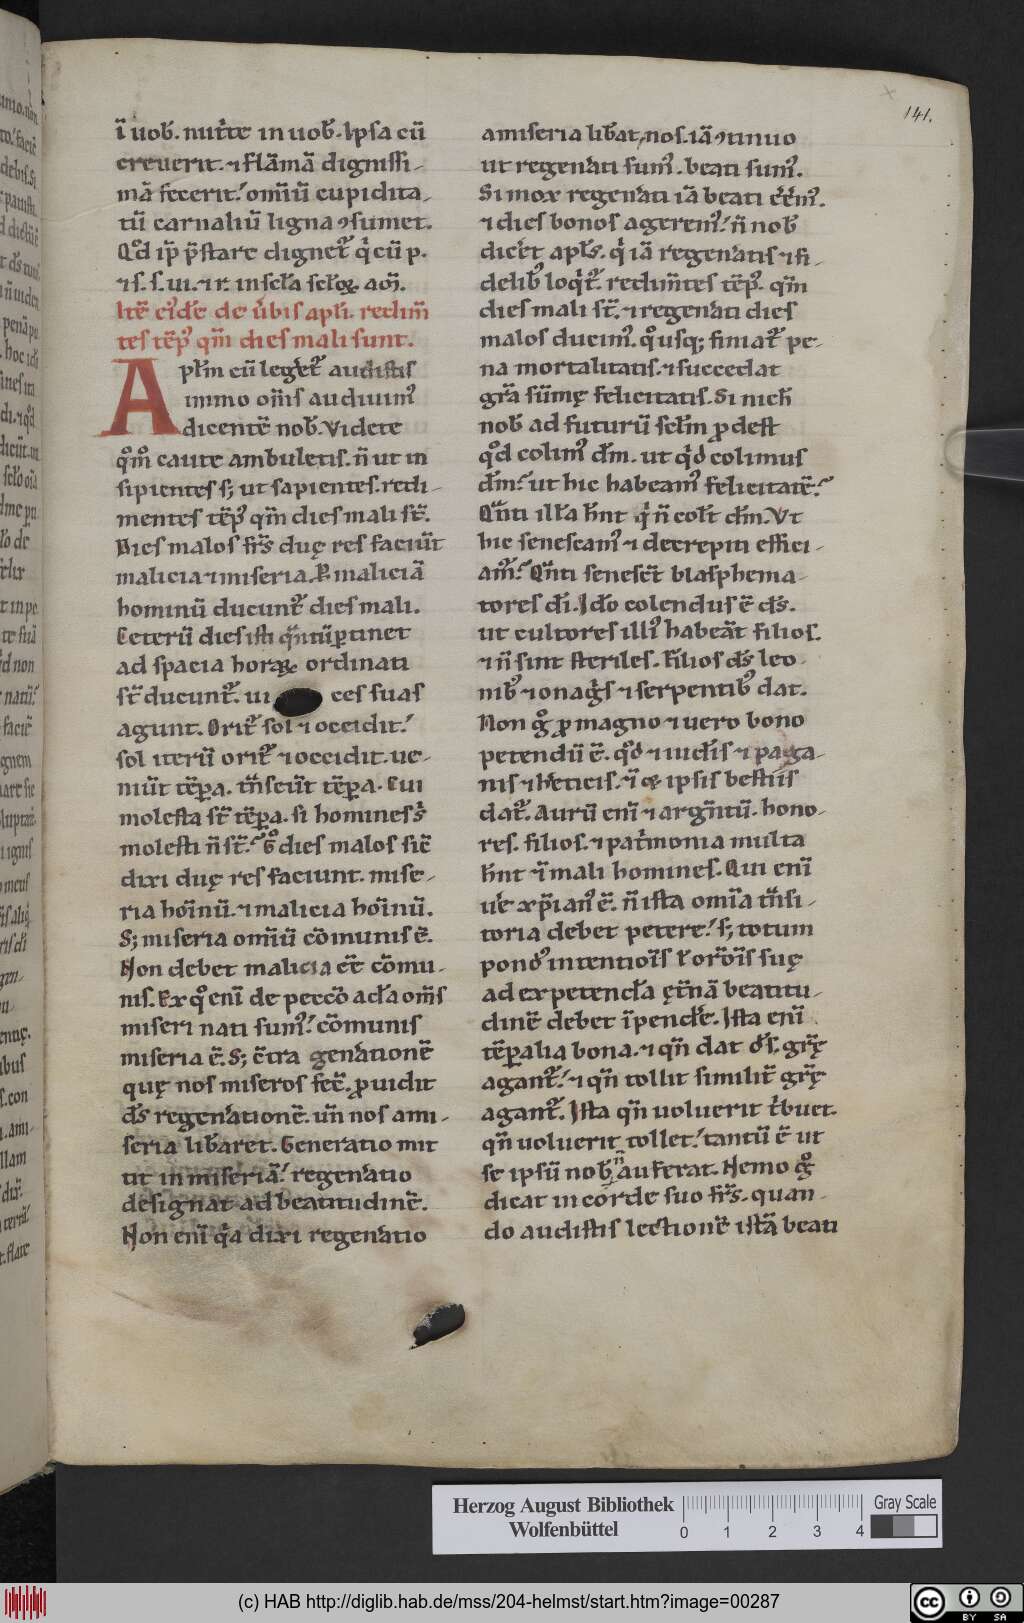 141.
ī uob̄. nut͛te in uob̄. Ipsa cū
creuerit. ⁊ flāmā digniſſi-
mā fecerit.' om̄iū cupidita-
tū carnaliū ligna ꝯsumet.
Qd̊ ip̄ p̄stare dignet᷒ qͥ cū p.
⁊ s. s. ui. ⁊ r. in scl̄a scl̄oꝝ. am̄.
Itē ei᷒dē de ūbis apl̄i. redim̄
tes tēp᷒ qm̄ dies mali sunt.
Apl̄m cū leg̾et᷒ audistis
immo om̄s audiuim᷒
dicentē nob̄. Videte
qͦmͦ caute ambuletis. n̄ ut in
sipientes s; ut sapientes. redi-
mentes tēp᷒ qm̄ dies mali st̄.
Dies malos fr̄s duę res faciūt
malicia ⁊ miseria. P̱ maliciā
hominū ducunt᷒ dies mali.
Ceterū dies isti qn̄tū ꝑtinet
ad spacia horaꝝ ordinati
st̄ ducunt᷒. ui ces suas
agunt. Orit᷒ sol ⁊ occidit.'
sol iterū orit᷒ ⁊ occidit. ue-
niūt tēꝑa. tn̄seūt tēꝑa. Cui
molesta st̄ tēꝑa. si homines s̄
molesti n̄ st̄.' gͦ dies malos sic̄
dixi duę res faciunt. mise-
ria hoīnū. ⁊ malicia hoīnū.
S; miseria om̄iū cōmunis ē.
Non debet malicia eē cōmu-
nis. Ex qͦ enī de pecco adā om̄s
miseri nati sum᷒.' cōmunis
miseria ē. S; c̄tra gen̾ationē
quę nos miseros fec̄. ꝓuidit
ds̄ regen̾ationē. un̄ nos ami-
seria lib̾aret. Generatio mit
tit in miseriā.' regen̾atio
designat ad beatitudinē.
Non enī qͣ dixi regen̾atio
amiseria lib̾at, nos. iā ꝯtinuo
ut regen̾ati sum᷒. beati sum᷒.
Si mox regen̾ati iā beati eēm᷒.
⁊ dies bonos agerem᷒.' n̄ nob̄
dic̾et apl̄s. qͥ iā regen̾atis ⁊ fi-
delib᷒ loqͥt᷒. redim̄tes tēp᷒. qm̄
dies mali st̄. ⁊ regen̾ati dies
malos ducim᷒. qͦusq; finiat᷒ pe-
na mortalitatis. ⁊ succedat
gr̄a sūmę felicitatis. Si nich̄
nob̄ ad futurū scl̄m ꝓdest
qd̊ colim᷒ dm̄. ut qͥd colimus
dm̄.' ut hic habeam᷒ felicitatē.'
Qn̄ti illā hn̄t qͥ n̄ col̄t dm̄. Ut
hic senescam᷒ ⁊ decrepiti effici-
am᷒.' Qn̄ti senesc̄t blasphema-
tores dī. Ido colendus ē ds̄.
ut cultores illi᷒ habeāt filios.
⁊ n̄ sint steriles. Filios ds̄ leo-
nib᷒ ⁊ onag̾s ⁊ serpentib᷒ dat.
Non gͦ ꝓ magno ⁊ uero bono
petendū ē. qd̊ ⁊ iudīs ⁊ paga-
nis ⁊ heticis. ⁊ ipsis bestiis
dat᷒. Aurū enī ⁊ argn̄tū. hono-
res. filios. ⁊ patͥmonia multa
hn̄t mali homines. Qui enī
ue̾ xp̄ian᷒ ē. n̄ ista omīa tn̄si-
toria debet petere.' s; totum
pond᷒ intentiois ł or̄ōis suę
ad expetendā ęt̄nā beatitu-
dinē debet īpend̾e. Ista enī
tēꝑalia bona. ⁊ qn̄ dat ds̄. gr̄ę
agant᷒.' ⁊ qn̄ tollit similit̾ gr̄ę
agant᷒. Ista qn̄ uoluerit tͥbuet.
qn̄ uoluerit tollet.' tantū ē ut
se ipsū nob̄ n̄ auferat. Nemo gͦ
dicat in corde suo fr̄s. quan-
do audistis lectionē istā beati
Herzog August Bibliothek
Wolfenbüttel
0 1 2 3 4
Gray Scale
(c) HAB http://diglib.hab.de/mss/204-helmst/start.htm?image=00287
cc BY SA